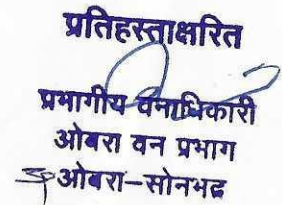 प्रतिहस्ताक्षरित
प्रभागीय वनाधिकारी
ओबरा वन प्रभाग
ओबरा–सोनभद्र